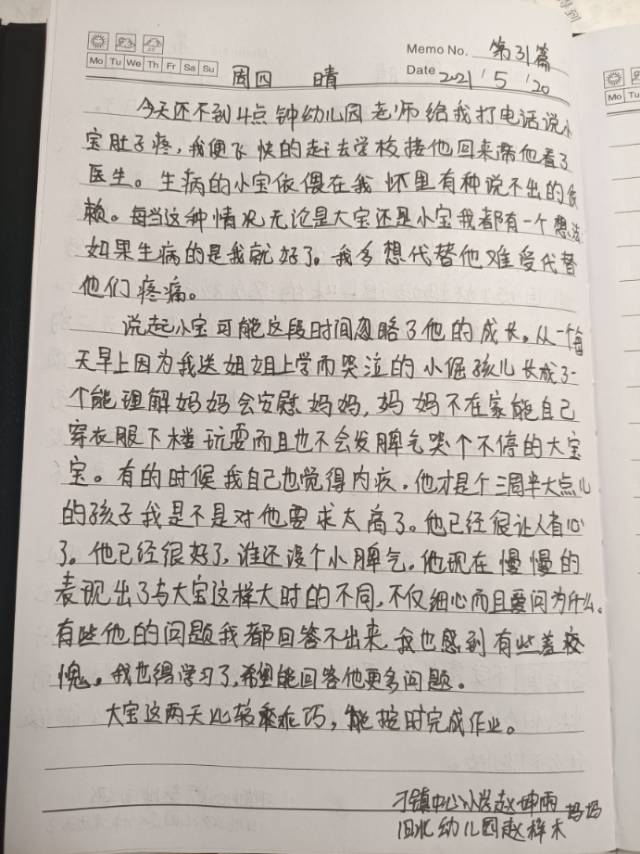 Memo No. 第31篇
Mo Tu We Th Fr Sa Su
Date 2021 ' 5 ' 20
周四 晴
今天还不到4点钟幼儿园老师给我打电话说小
宝肚子疼，我便飞快的赶去学校接他回来带他看了
医生。生病的小宝依偎在我怀里有种说不出的依
赖。每当这种情况无论是大宝还是小宝我都有一个想法
如果生病的是我就好了。我多想代替他难受代替
他们疼痛。
说起小宝可能这段时间忽略了他的成长。从一个每
天早上因为我送姐姐上学而哭泣的小倔孩儿长成了一
个能理解妈妈会安慰妈妈，妈妈不在家能自己
穿衣服下楼玩耍而且也不会发脾气哭个不停的大宝
宝。有的时候我自己也觉得内疚。他才是个三周半大点儿
的孩子我是不是对他要求太高了。他已经很让人省心
了。他已经很好了，谁还没个小脾气。他现在慢慢的
表现出了与大宝这样大时的不同，不仅细心而且爱问为什么。
有些他的问题我都回答不出来，我也感到有些羞
愧。我也得学习了，希望能回答他更多问题。
大宝这两天比较乖巧，能按时完成作业。
刁镇中心小学赵坤雨妈妈
旧水幼儿园赵梓木
Mo Tu